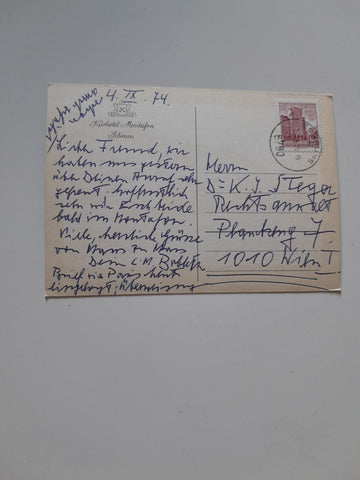 4. IX. 74.
Kurhotel Montafon
Schruns
Lieber Freund, wir
haben uns gestern
über Deinen Anruf sehr
gefreut. Hoffentlich
sehen wir Euch beide
bald im Montafon.
Viele, herzliche Grüsse
von Haus zu Haus
Dein
Brief via Paris heut
eingelangt,
Herrn
Dr K. J. Steger
Rechtsanwalt
Plankeng. 7.
1010 Wien I